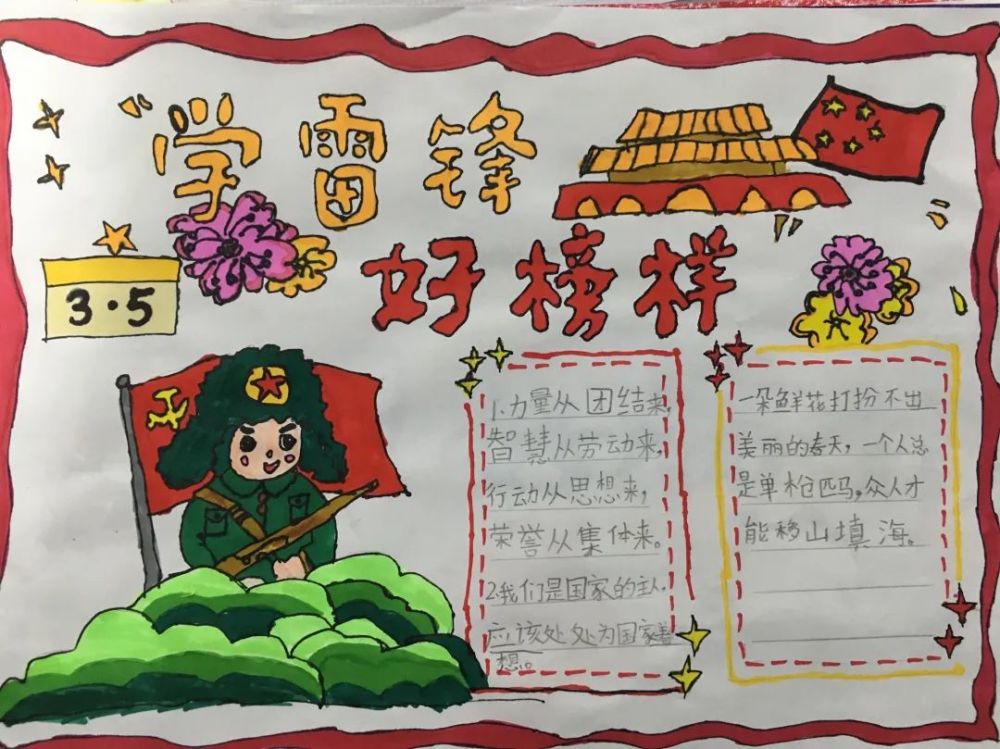 学雷锋
好榜样
3·5
1.力量从团结来,
智慧从劳动来,
行动从思想来,
荣誉从集体来。
2.我们是国家的主人,
应该处处为国家着
想。
一朵鲜花打扮不出
美丽的春天,一个人总
是单枪匹马,众人才
能移山填海。